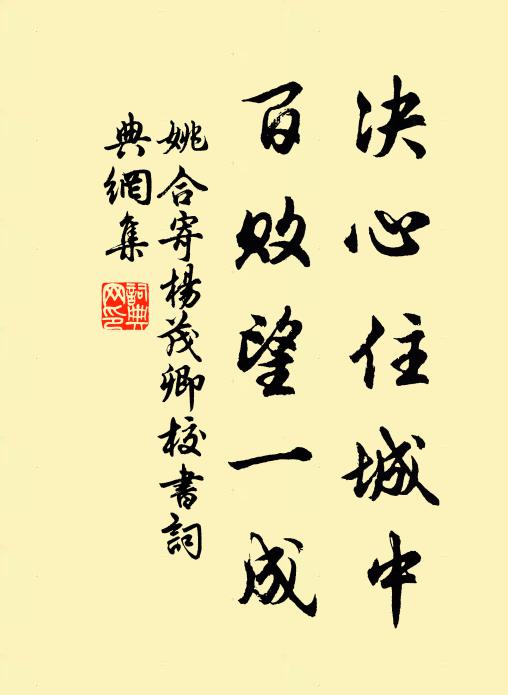 决心住城中
百败望一成
姚合寄楊茂卿校書詞
典網集
詞典
网印